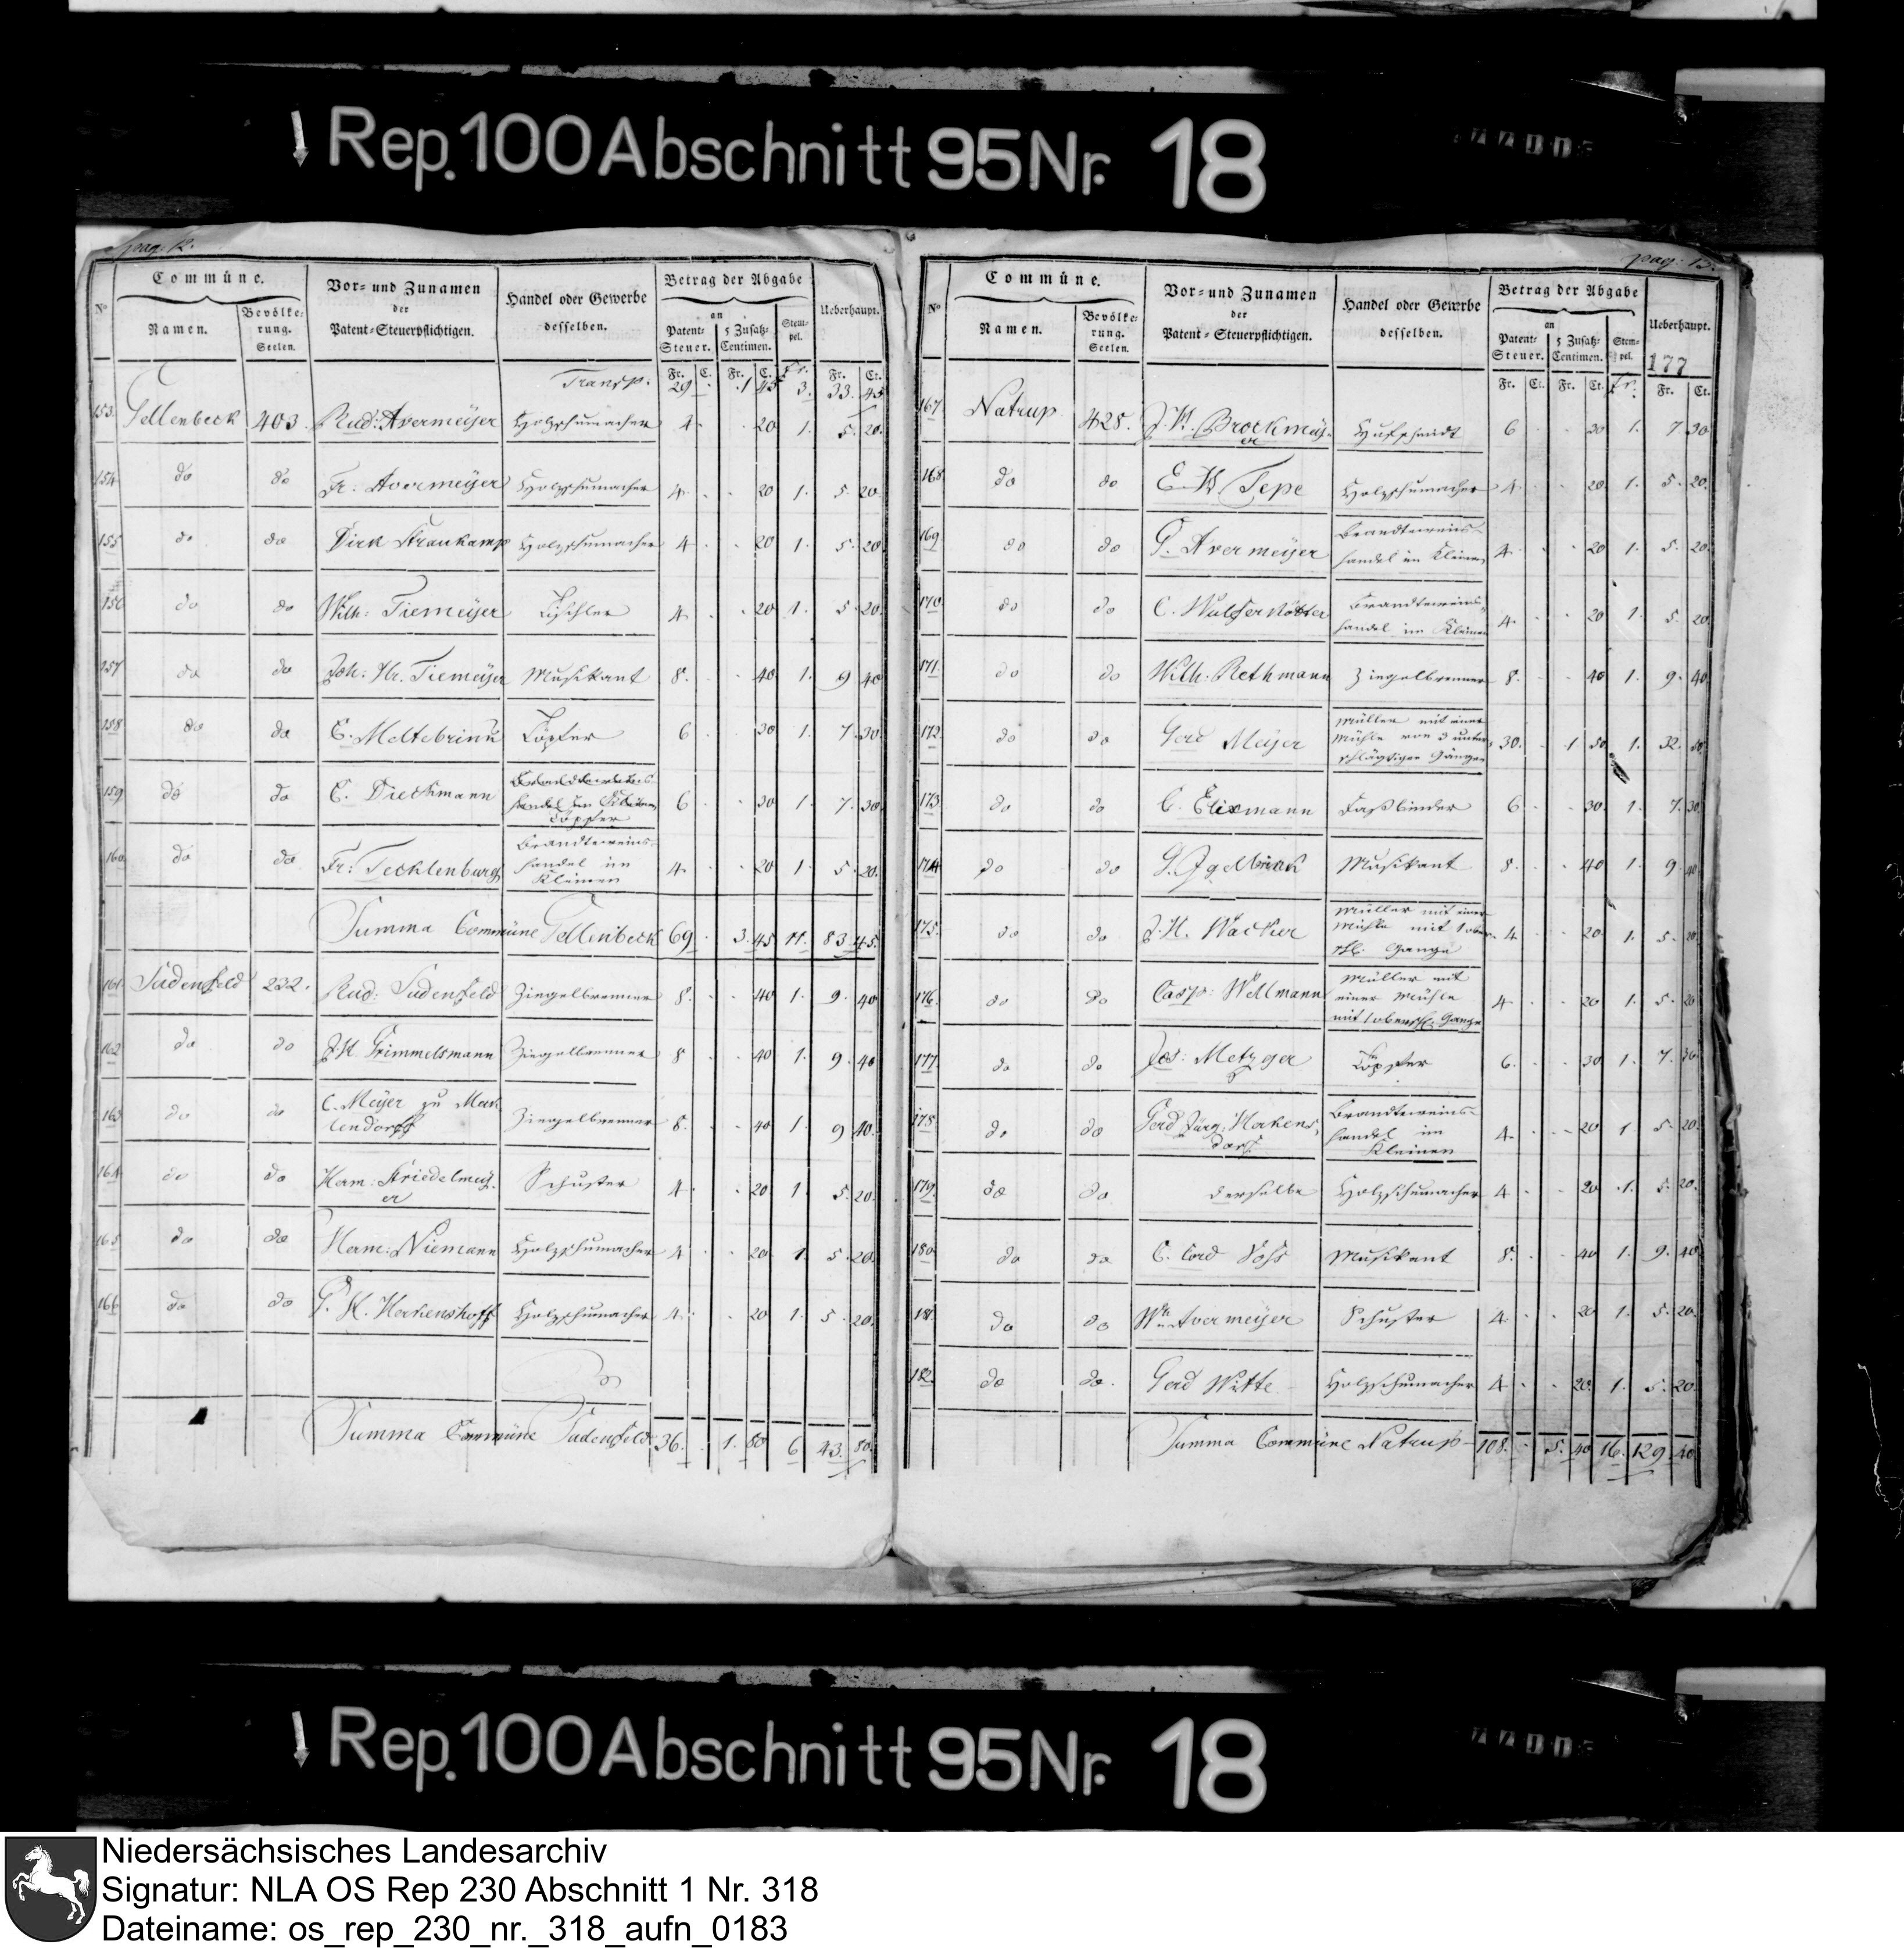 Rep. 100 Abschnitt 95 Nr. 18
pag. 12.
No
Commüne.
Namen.
Bevölke-
rung.
Seelen.
Vor- und Zunamen
der
Patent-Steuerpflichtigen.
Handel oder Gewerbe
desselben.
Betrag der Abgabe
an
Patent-
Steuer.
5 Zusatz-
Centimen.
Stem-
pel.
Ueberhaupt.
Fr. C. Fr. C. Fr. Fr. Ct.
Transp. 29 . 1 45 3. 33. 45
153. Gellenbeck 403. Rud: Avermeyer Holzschumacher 4 . . 20 1. 5. 20.
154 do do Fr. Avermeyer Holzschumacher 4. . . 20 1. 5. 20.
155 do do Dirk Straukamp Holzschumacher 4 . . 20 1. 5. 20.
156 do do Wilh: Tiemeyer Tischler 4. . . 20 1. 5. 20.
157 do do Joh: Hr. Tiemeyer Musikant 8. . . 40 1. 9 40
158 do do C. Meltebrink Töpfer 6 . . 30 1. 7. 30.
159 do do C. Dieckmann Brandteweins-
handel im Kleinen
Töpfer 6 . . 30 1. 7. 30.
160 do do Fr: Tecklenburg Brandteweins-
handel im
Kleinen 4. . . 20 1. 5. 20.
Summa Commüne Gellenbeck 69 . 3. 45 11. 83 45.
161 Sudenfeld 232. Rud: Sudenfeld Ziegelbrenner 8. . . 40 1. 9. 40
162 do do J. H. Grimmelsmann Ziegelbrenner 8 . . 40 1. 9. 40
163 do do C. Meyer zu Mek
lendorff Ziegelbrenner 8. . . 40 1. 9 40.
164 do do Herm: Striedelmey-
er Schuster 4 . . 20 1. 5. 20.
165 do do Herm: Niemann Holzschumacher 4 . . 20 1. 5. 20.
166 do do G. H. Herkenshoff Holzschumacher 4. . . 20 1. 5. 20.
Summa Commüne Sudenfeld 36. . 1. 80 6 43. 80.
pag. 13.
No
Commüne.
Namen.
Bevölke-
rung.
Seelen.
Vor- und Zunamen
der
Patent-Steuerpflichtigen.
Handel oder Gewerbe
desselben.
Betrag der Abgabe
an
Patent-
Steuer.
5 Zusatz-
Centimen.
Stem-
pel.
Ueberhaupt.
177
Fr. Ct. Fr. Ct. Fr. Fr. Ct.
167 Natrup 428. J. H. Brockmey-
er Hufschmidt 6 . . 30 1. 7. 30
168 do do E. W. Tepe Holzschumacher 4. . . 20 1. 5. 20.
169 do do G. Avermeyer Brandteweins-
handel im Kleinen 4. . . 20 1. 5. 20.
170 do do C. Brandteweins-
handel im Kleinen 4. . . 20 1. 5. 20
171 do do Wilh: Rethmann Ziegelbrenner 8. . . 40 1. 9. 40
172 do do Gerd Meyer Müller mit einer
Mühle von 3 unter-
schlägtigen Gängen 30. . 1 50 1. 32. 50
173 do do C. Elixmann Faßbinder 6 . . 30 1. 7. 30
174 do do G. Igelbrink Musikant 8. . . 40 1. 9 40
175. do do J. H. Wacker Müller mit einer
Mühle mit 1 ober-
schl. Gange 4 . . 20 1. 5. 20
176. do do Casp: Wellmann Müller mit
einer Mühle
mit 1 oberschl. Gange 4 . . 20 1. 5. 20
177. do do Jos: Metzger Töpfer 6. . . 30 1. 7. 30
178. do do Gerd Jürg: Herkens-
Brandteweins-
handel im
Kleinen 4. . . 20 1 5. 20.
179. do do derselbe Holzschumacher 4 . . 20 1. 5. 20.
180 do do C. Cord Voss Musikant 8. . . 40 1. 9. 40
181. do do Avermeyer Schuster 4. . . 20 1. 5. 20.
182. do do. Gerd Witte Holzschumacher 4 . . 20. 1. 5. 20.
Summa Commüne Natrup 108. . 5. 40 16. 129. 40
Rep. 100 Abschnitt 95 Nr. 18
Niedersächsisches Landesarchiv
Signatur: NLA OS Rep 230 Abschnitt 1 Nr. 318
Dateiname: os_rep_230_nr._318_aufn_0183